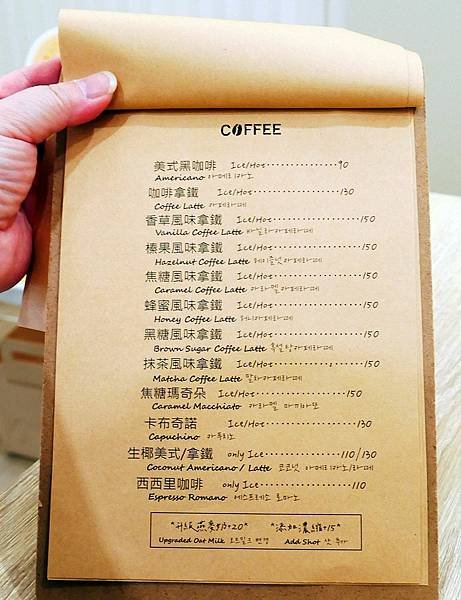 COFFEE
美式黑咖啡 Ice/Hot 90
Americano 아메리카노
咖啡拿鐵 Ice/Hot 130
Coffee Latte 카페라떼
香草風味拿鐵 Ice/Hot 150
Vanilla Coffee Latte 바닐라카페라떼
榛果風味拿鐵 Ice/Hot 150
Hazelnut Coffee Latte 헤이즐넛카페라떼
焦糖風味拿鐵 Ice/Hot 150
Caramel Coffee Latte 카라멜카페라떼
蜂蜜風味拿鐵 Ice/Hot 150
Honey Coffee Latte 허니카페라떼
黑糖風味拿鐵 Ice/Hot 150
Brown Sugar Coffee Latte 흑설탕카페라떼
抹茶風味拿鐵 Ice/Hot 150
Matcha Coffee Latte 말차카페라떼
焦糖瑪奇朵 Ice/Hot 150
Caramel Macchiato 카라멜 마끼아또
卡布奇諾 Ice/Hot 130
Capuchino 카푸치노
生椰美式/拿鐵 only Ice 110/130
Coconut Americano / Latte 코코넛 아메리카노/라떼
西西里咖啡 only Ice 110
Espresso Romano 에스프레소 로마노
*升級燕麥奶+20* *添加濃縮+15*
Upgraded Oat Milk 오트밀크 변경 Add Shot 샷 추가